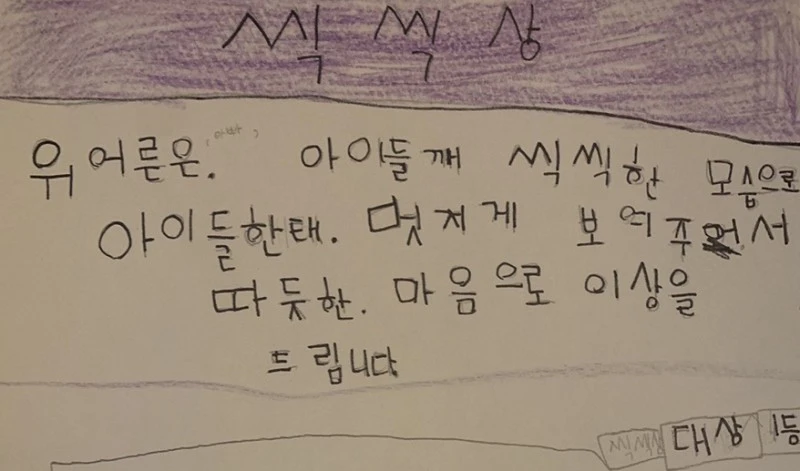 씩씩상
위어른은. 아이들깨 씩씩한 모습으로
아이들한태. 멋지게 보여주어서
따듯한. 마음으로 이상을
드립니다
씩씩상 대상 1등